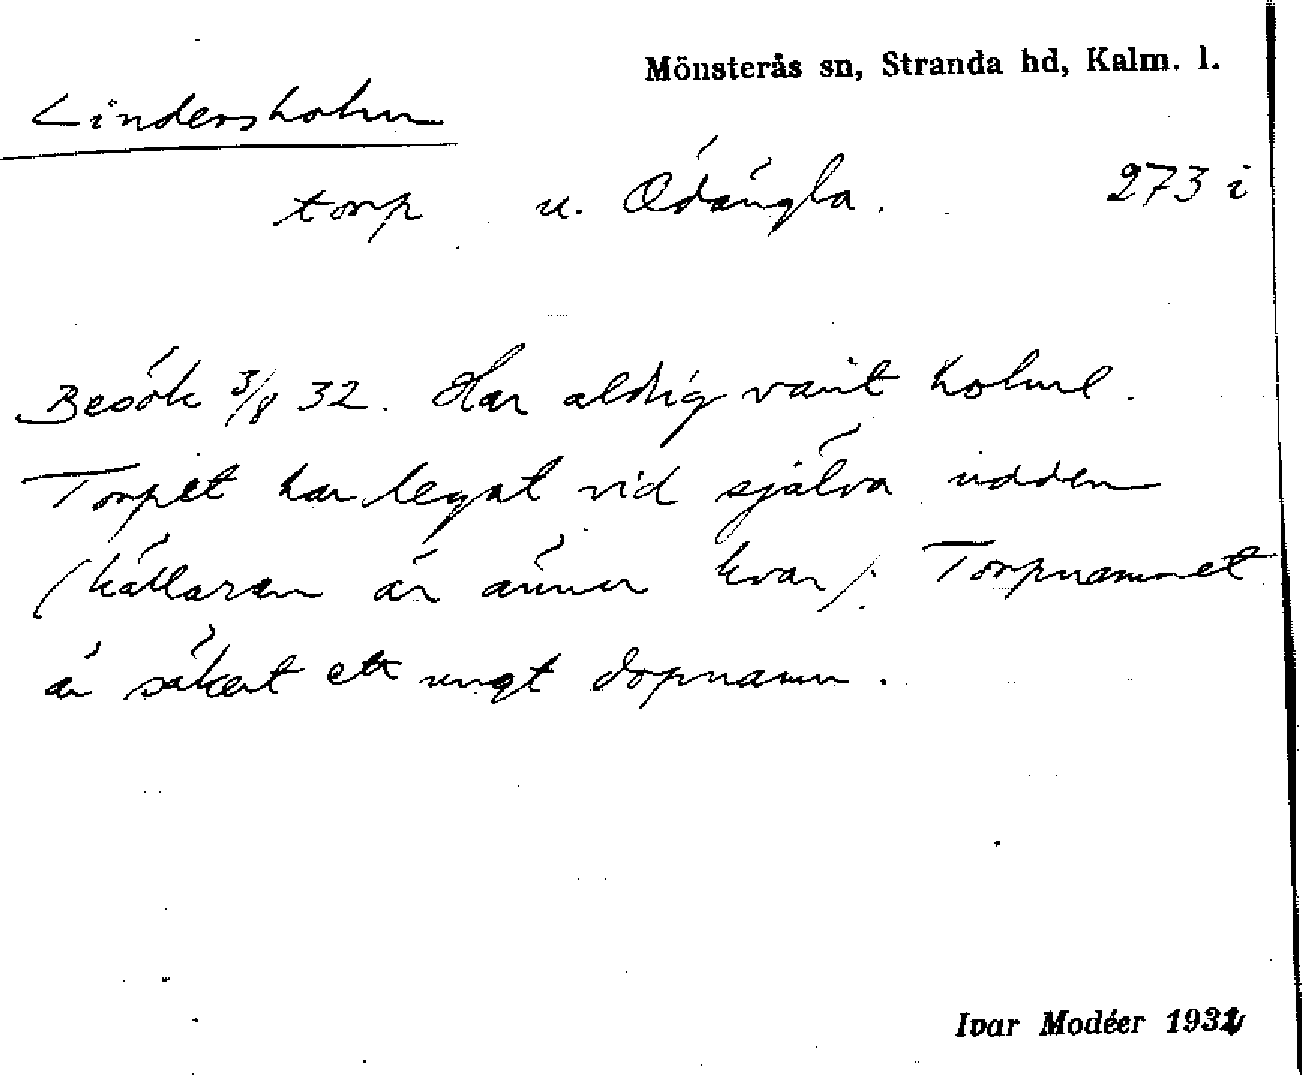 Mönsterås sn, Stranda hd, Kalm. l.
Lindersholm
torp u. Ödängla. 273 i
Besök 3/8 32. Har aldrig varit holme.
Torpet har legat vid själva udden
(källaren är ännu kvar). Torpnamnet
är säkert ett ungt dopnamn.
Ivar Modéer 1932